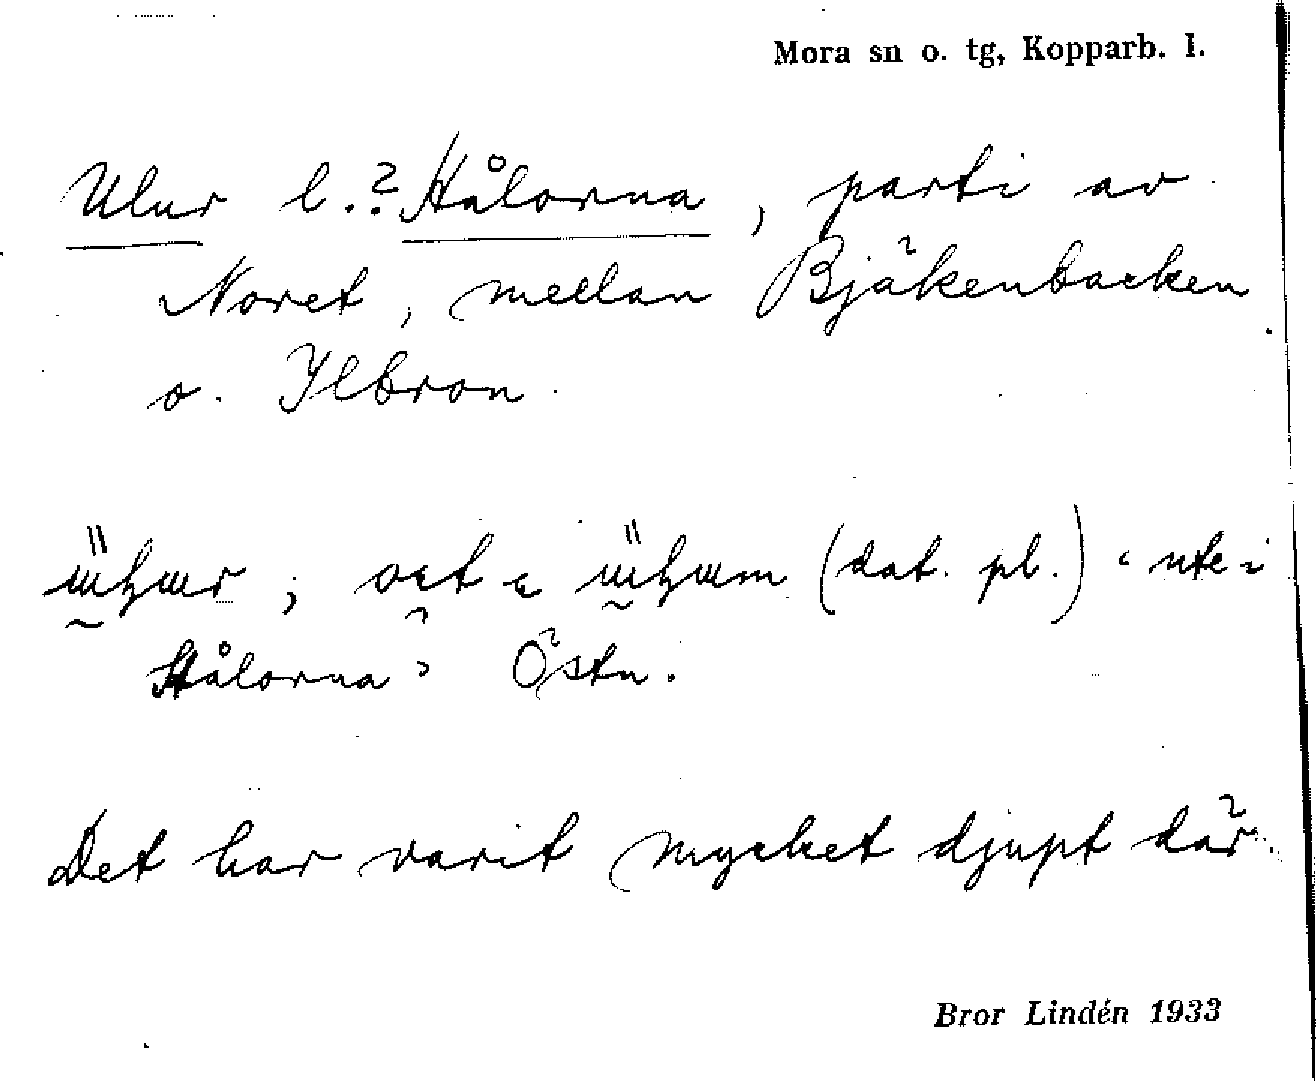 Mora sn o. tg, Kopparb. l.
Ulur l.? Hålorna, parti av
Noret, mellan Bjäkenbacken
o. Ilbron.
; (dat. pl.) ‘ute i
Hålorna’ Östn.
Det har varit mycket djupt där.
Bror Lindén 1933